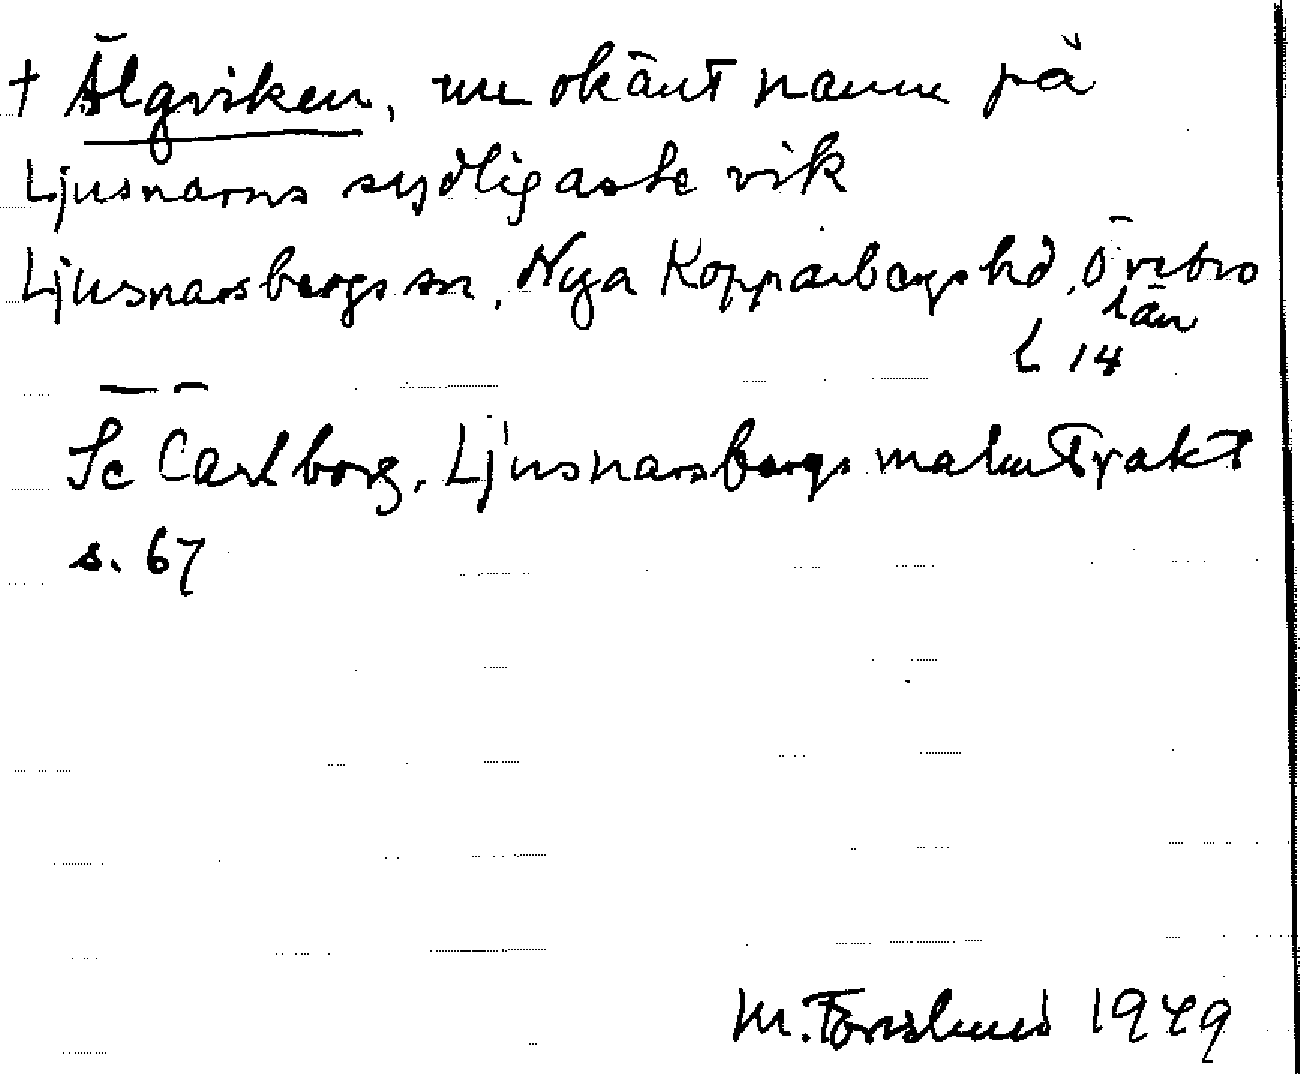 † Älgviken, nu okänt namn på
Ljusnarns sydligaste vik
Ljusnarsbergs sn, Nya Kopparbergs hd, Örebro
län
L 14
Se Carlborg, Ljusnarsbergs malmtrakt
s. 67
M. Forslund 1949